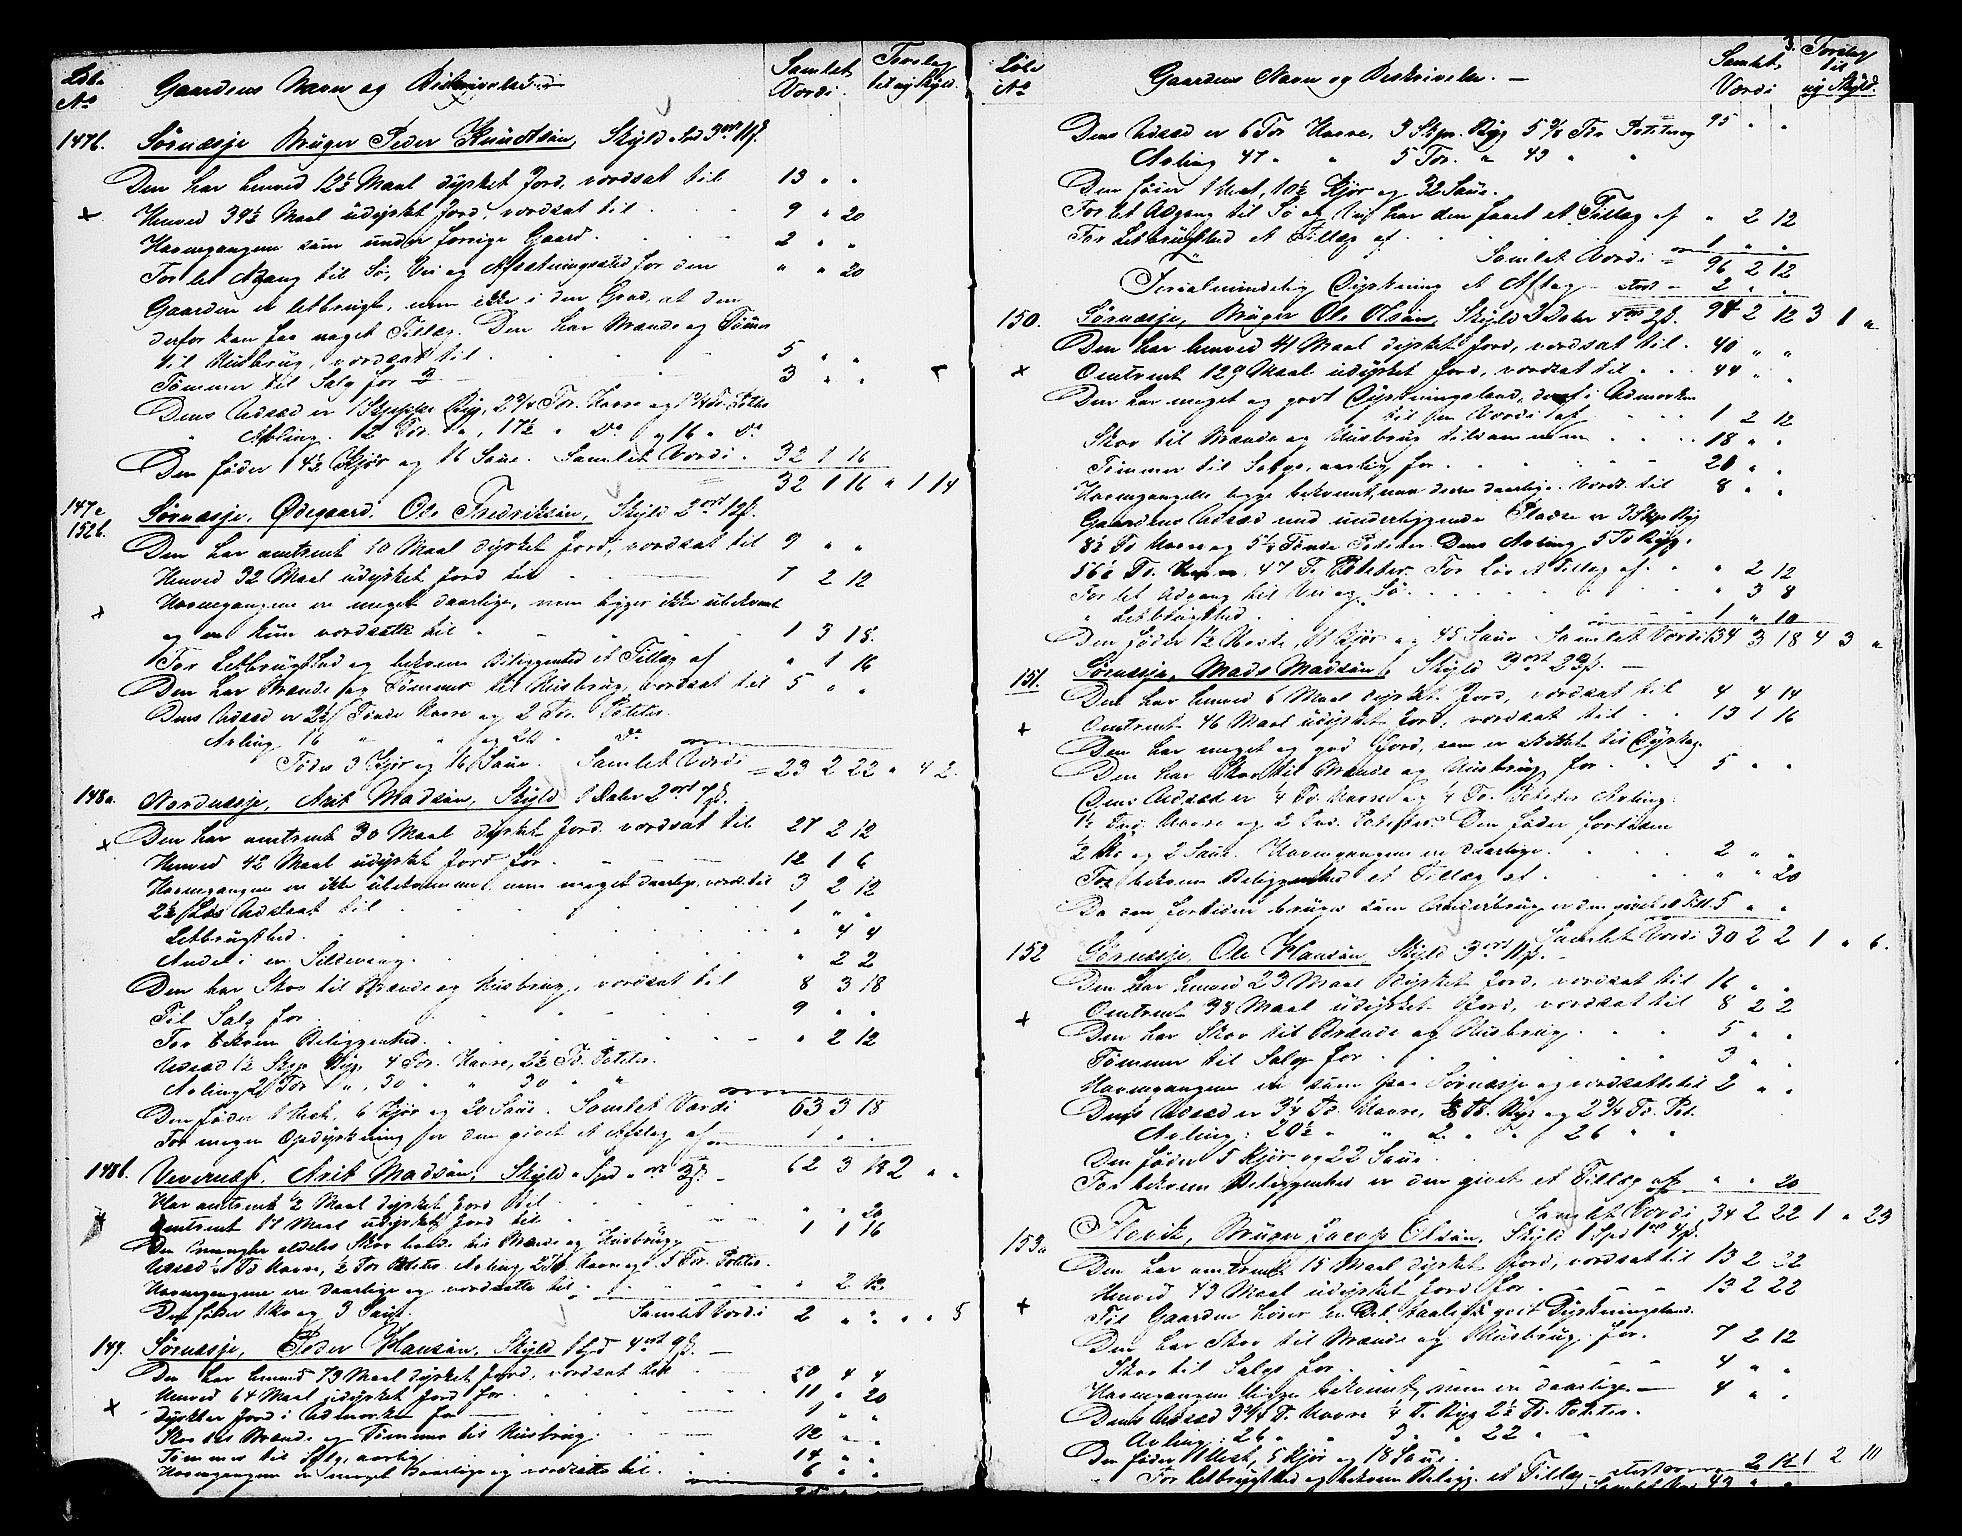 Löbe No Gaardens Navn og Beskrivelse Samlet Værdi. Forslag til ny Skyld.
147b. Sörnæsje Bruger Peder Knudtsön, Skyld
Den har henved 12½ Maal dyrket Jord, værdsat til 13 " "
Henved 39½ Maal udyrket Jord, værdsat til 9 " 20
Havnegangene som under forrige Gaard. 2 " "
For let Adgang til Sö, Vei og Afsætningssted for den " " 20
Gaarden er letbrugt, men ikke i den Grad, at den
derfor kan faa noget Tillæg. Den har Brænde og Tömmer
til Husbrug, værdsat til 5 " "
Tömmer til Salg for 3 " "
Dens Udsæd er 1 Skjeppe Byg, 2¾ Tdr. Havre og 1¾ Tdr. Poteter
" Avling. 12 Tdr. " , 17½ " Do og 16 " Do
Den föder 4½ Kjör og 16 Saue. Samlet Værdi. 32 1 16
32 1 16 " 1 14
147c 152b. Sörnæsje, Ödegaard. Ole Fredriksön, Skyld 2 ort 12 s.
Den har omtrent 10 Maal dyrket Jord, værdsat til 9 " "
Henved 32 Maal udyrket Jord til 7 2 12
Havnegangene er meget daarlige, men ligger ikke ubekvemt
og er kun værdsatte til 1 3 18.
For Letbrugthed og bekvem Beliggenhed et Tillæg af " 1 16
Den har Brænde og Tömmer til Husbrug, værdsat til 5 " "
Dens Udsæd er 2½ Tönde Havre og 2 Tdr. Poteter.
Avling, 16 " " og 26 " Do
Föder 3 Kjör og 16 Saue. Samlet Værdi = 23 2 22 " 4 2.
148a. Nordnæsje, Arik Madsön, Skyld 1 Daler 2 ort 7 s.
Den har omtrent 30 Maal dyrket Jord. værdsat til 27 2 12
Henved 42 Maal udyrket Jord for. 12 1 6
Havnegangene er ikke ubekvemme, men meget daarlige, værds. til 3 2 12
2½ Læs Udslaat til 1 " "
Letbrugthed. " 4 4
Andel i en Sildevaag. " 2 2
Den har Skov til Brænde og Husbrug, værdsat til 8 3 18
Til Salg for 9 " "
For bekvem Beliggenhed. " 2 12
Udsæd 1½ Skjp. Byg, 4 Tdr. Havre, 2½ Td. Poteter.
Avling 2 Tdr " , 30 " " 30 " "
Den föder 1 Hest, 6 Kjör og 20 Saue. Samlet Værdi 63 3 18
For megen Opdyrkning for den givet et Afslag af 1 " "
148b. Arik Madsön, Skyld " Spd " ort 3 s. 62 3 18 2 " "
Har omtrent ½ Maal dyrket Jord til " " 20
Omtrent 17 Maal udyrket Jord til 1 1 16
Den mangler aldeles Skov baade til Brænde og Husbrug,
Havnegangene ere daarlige og værdsatte til " 2 12
Den föder 1 Ko og 3 Saue. Samlet Værdi 2 " " " " 8
149. Sörnæsje, Peder Hansön, Skyld 1 Spd 4 ort 9 s.
Den har henved 73 Maal dyrket Jord, værdsat til 50 4 4
Henved 64 Maal udyrket Jord for 11 " 20
Dyrkbar Jord i Udmarken for 1 " "
Skov til Brænde og Tömmer til Husbrug. 12 " "
Tömmer til Salg, aarlig 14 " "
Havnegangene er meget daarlige og værdsatte til. 6 " "
95 " "
Löbe No Gaardens Navn og Beskrivelse. Samlet Værdi 3. Forslag til ny Skyld.
Dens Udsæd er 6 Tdr Havre, 3 Skjp. Byg 5⅜ Tdr Poteter og 95 " "
Avling 47 " " 5 Tdr. " 43 " "
Den föder 1 Hest, 10½ Kjör og 32 Saue.
For let Adgang til Sö og Vei har den faaet et Tillæg af " 2 12
For Letbrugthed et Tillæg af 1 " "
Samlet Værdi = 96 2 12
Ferialmindelig Dyrkning et Afslag 2 " "
150. Sörnæsje, Bruger Ole Olsön, Skyld 2 Daler 4 ort 2 s. 94 2 12 3 1 "
Den har henved 41 Maal dyrket Jord, værdsat til. 40 " "
Omtrent 129 Maal udyrket Jord, værdsat til 44 " "
Den har meget og godt Dyrkningsland, deraf i Udmarken
til en Værdi af 1 2 12
Skov til Brænde og Husbrug tilsammen 18 " "
Tömmer til Salgs, aarlig, for. 20 " "
Havnegangene ligge bekvemt, men deres daarlige. Værds. til 8 " "
Gaardens Udsæd med underliggende Pladse er 3 Skjp Byg
8½ Td Havre og 5⅛ Tönde Poteter. Dens Avling 5 Td Byg.
56½ Td. Havre. 47 T. Poteter. For Löv et Tillæg af. " 2 12
For let Adgang til Vei og Sö " 3 8
" Letbrugthed 1 " 10
Den föder 1½ Heste, 11 Kjör og 45 Saue Samlet Værdi 134 3 18 4 3 "
151. Sörnæsje, Mads Madsön, Skyld 3 ort 23 s.
Den har henved 6 Maal dyrket Jord, værdsat til 4 4 14
Omtrent 46 Maal udyrket Jord, værdsat til 13 1 16
Den har meget og god Jord, som er skikket til Dyrkng.
Den har Skov til Brænde og Husbrug for. 5 " "
Dens Udsæd er ¼ Td. Havre og ¼ Td. Poteter Avling:
1½ Tnd. Havre og 2 Tnd. Poteter. Den föder fortiden
½ Ko og 2 Saue. Havnegangene ere daarlige. 2 " "
For bekvem Beliggenhed et Tillæg af. " " 20
Da den fortiden bruges som Underbrug er den givet et Till. 5 " "
Samlet Værdi 30 2 2 1 " 6.
152 Sörnæsje, Ole Hansön, Skyld 3 ort 11 s.
Den har henved 23 Maal dyrket Jord, værdsat til 16 " "
Omtrent 38 Maal udyrket Jord, værdsat til 8 2 2
Den har Skov til Brænde og Husbrug. 5 " "
Tömmer til Salg for 3 " "
Havnegangene er som paa Sörnæsje og værdsatte til 2 " "
Dens Udsæd er 3¼ Td. Havre, ⅛ Td. Byg og 2¾ Td. Pot.
Avling: 20½ " " 2 " " 26 " "
Den föder 5 Kjör og 22 Saue.
For bekvem Beliggenhed er den givet et Tillæg af " " 20
Samlet Værdi 34 2 22 1 " 23
153a Flovik, Bruger Jacob Olsön, Skyld 1 Spd 1 ort 4 s.
Den har omtrent 15 Maal dyrket Jord, værdsat til 13 2 22
Henved 43 Maal udyrket Jord for 13 2 22
Til Gaarden hörer en Del godt Dyrkningsland.
Den har Skov til Brænde og Husbrug for. 7 2 12
Skov til Salgs for 4 " "
Havnegangene ligge bekvemt, men er daarlige. 4 " "
Dens Udsæd 3¾ T. Havre ¼ T. Byg 2½ Td. Poteter.
Avling: 26 " " 3 " " 22 " "
Den föder 1 Hest, 5 Kjör og 18 Saue.
For Letbrugthed og bekvem Beligg. et Tillæg 2 12 1 2 10
Samlet Værdi 43 " "